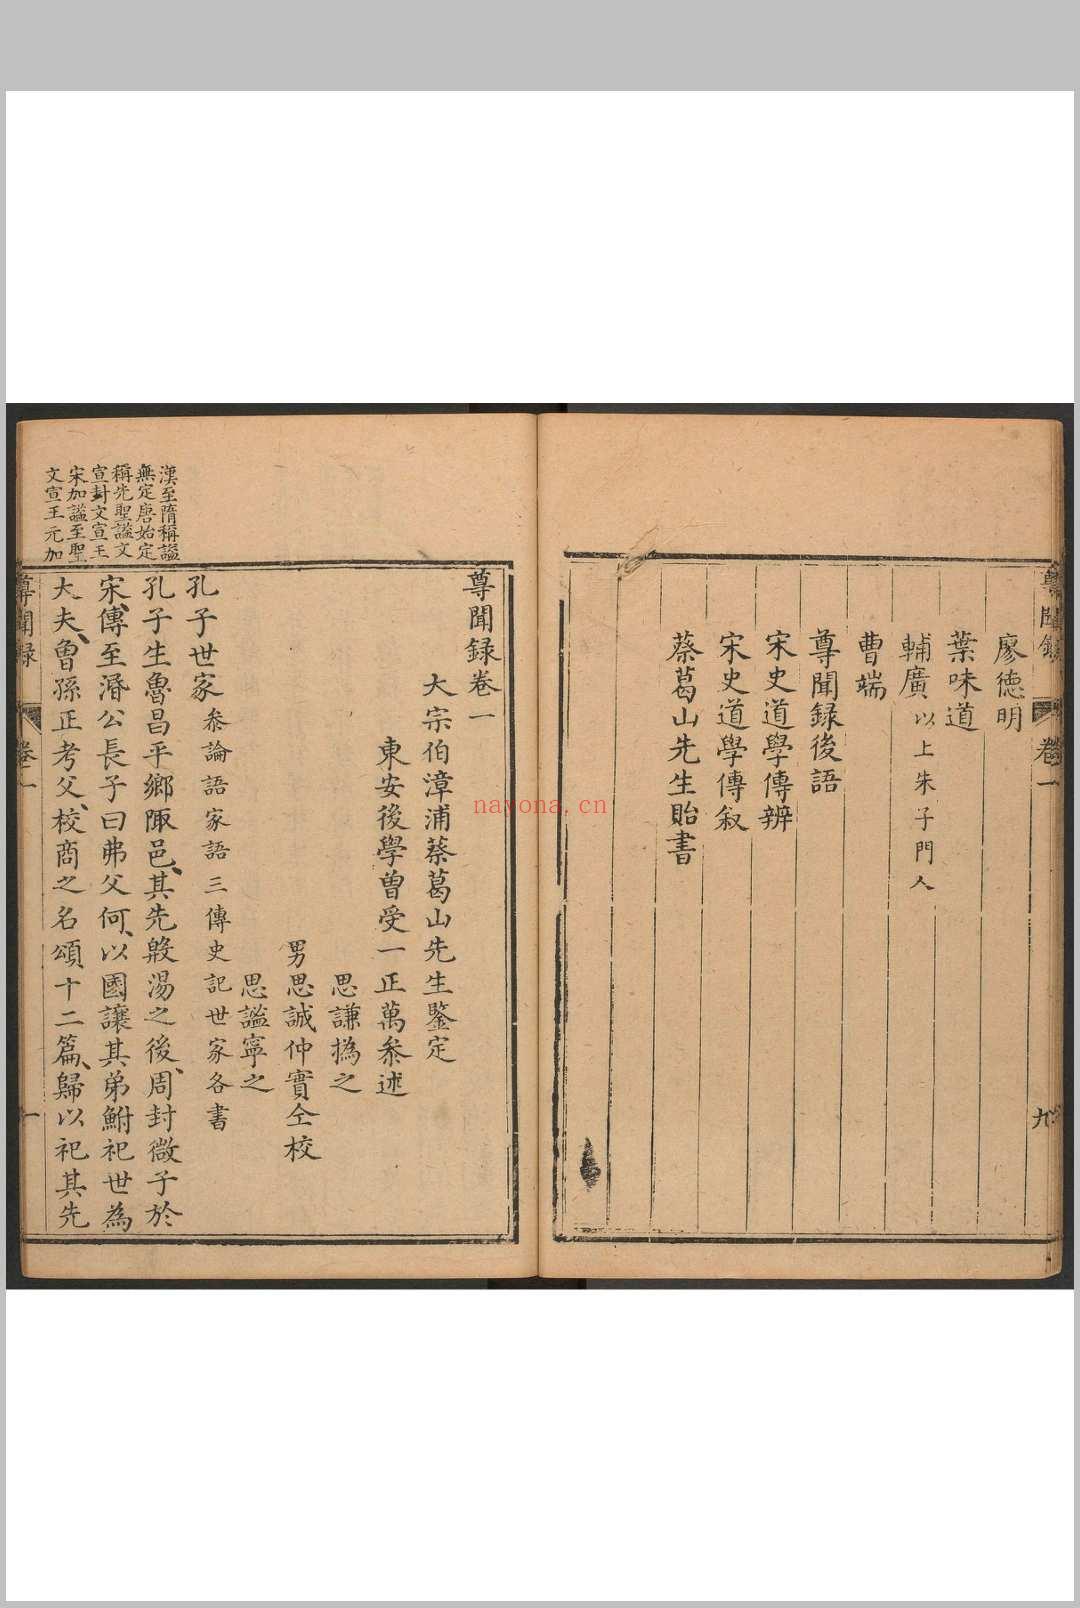 尊聞錄
卷一
九
廖德明
葉味道
輔廣以上朱子門人
曹端
尊聞録後語
宋史道學傳辨
宋史道學傳叙
蔡葛山先生貽書
尊聞録卷一
大宗伯漳浦蔡葛山先生鑒定
東安後學曾受一正萬叅述
思謙撝之
男思誠仲實仝校
思謐寧之
孔子世家叅論語家語三傳史記世家各書
孔子生魯昌平鄉陬邑、其先殷湯之後、周封微子於
宋、傳至湣公長子曰弗父何、以國讓其弟鮒祀世為
大夫、魯孫正考父、校商之名頌十二篇、歸以祀其先
漢至隋稱謚
無定唐始定
稱先聖謚文
宣封文宣王
宋加謚至聖
文宣王元加
尊聞録
卷一
一
nayona.cn